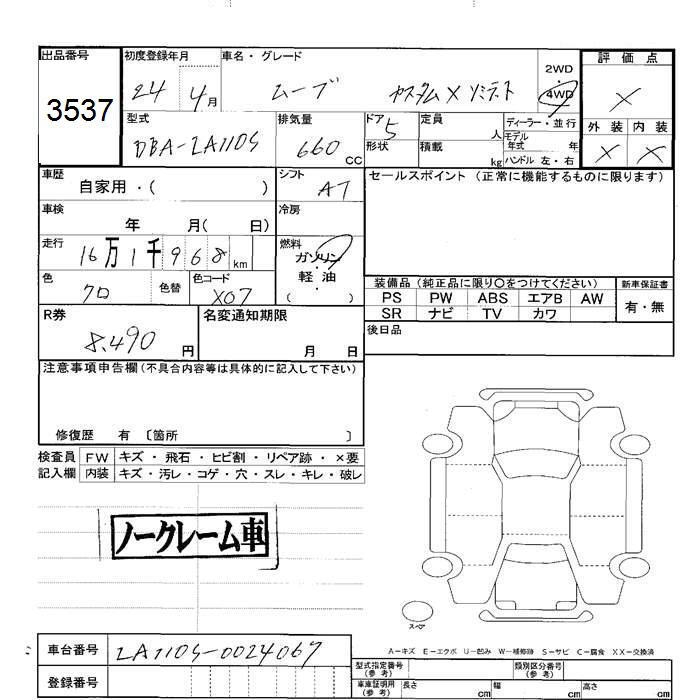 出品番号 初度登録年月 車名・グレード 2WD 評価点
3537 24 4月 ムーブ カスタムX リミテッド 4WD X
型式 排気量 ドア 定員 ディーラー・並行 外装 内装
DBA-LA110S 660CC 5 人 モデル年式 年 X X
形状 積載 kg ハンドル 左・右
車歴 シフト セールスポイント (正常に機能するものに限ります)
自家用・( ) AT
車検 冷房
年 月( 日)
走行 燃料
16万1千968km ガソリン・
軽油
色 色替 色コード ( )
クロ X07
装備品 (純正品に限り〇をつけてください) 新車保証書
PS PW ABS エアB AW 有・無
SR ナビ TV カワ
R券 名変通知期限 後日品
8,490円 月 日
注意事項申告欄(不具合内容等は具体的に記入して下さい)
修復歴 有 〔箇所 〕
検査員 FW キズ・飛石・ヒビ割・リペア跡・×要
記入欄 内装 キズ・汚レ・コゲ・穴・スレ・キレ・破レ
ノークレーム車
スペア
A−キズ E−エクボ U−凹み W−補修跡 S−サビ C−腐食 XX−交換済
車台番号 LA110S-0024067
登録番号
型式指定番号(参考) 類別区分番号(参考)
車庫証明用(参考) 長さ cm 幅 cm 高さ cm